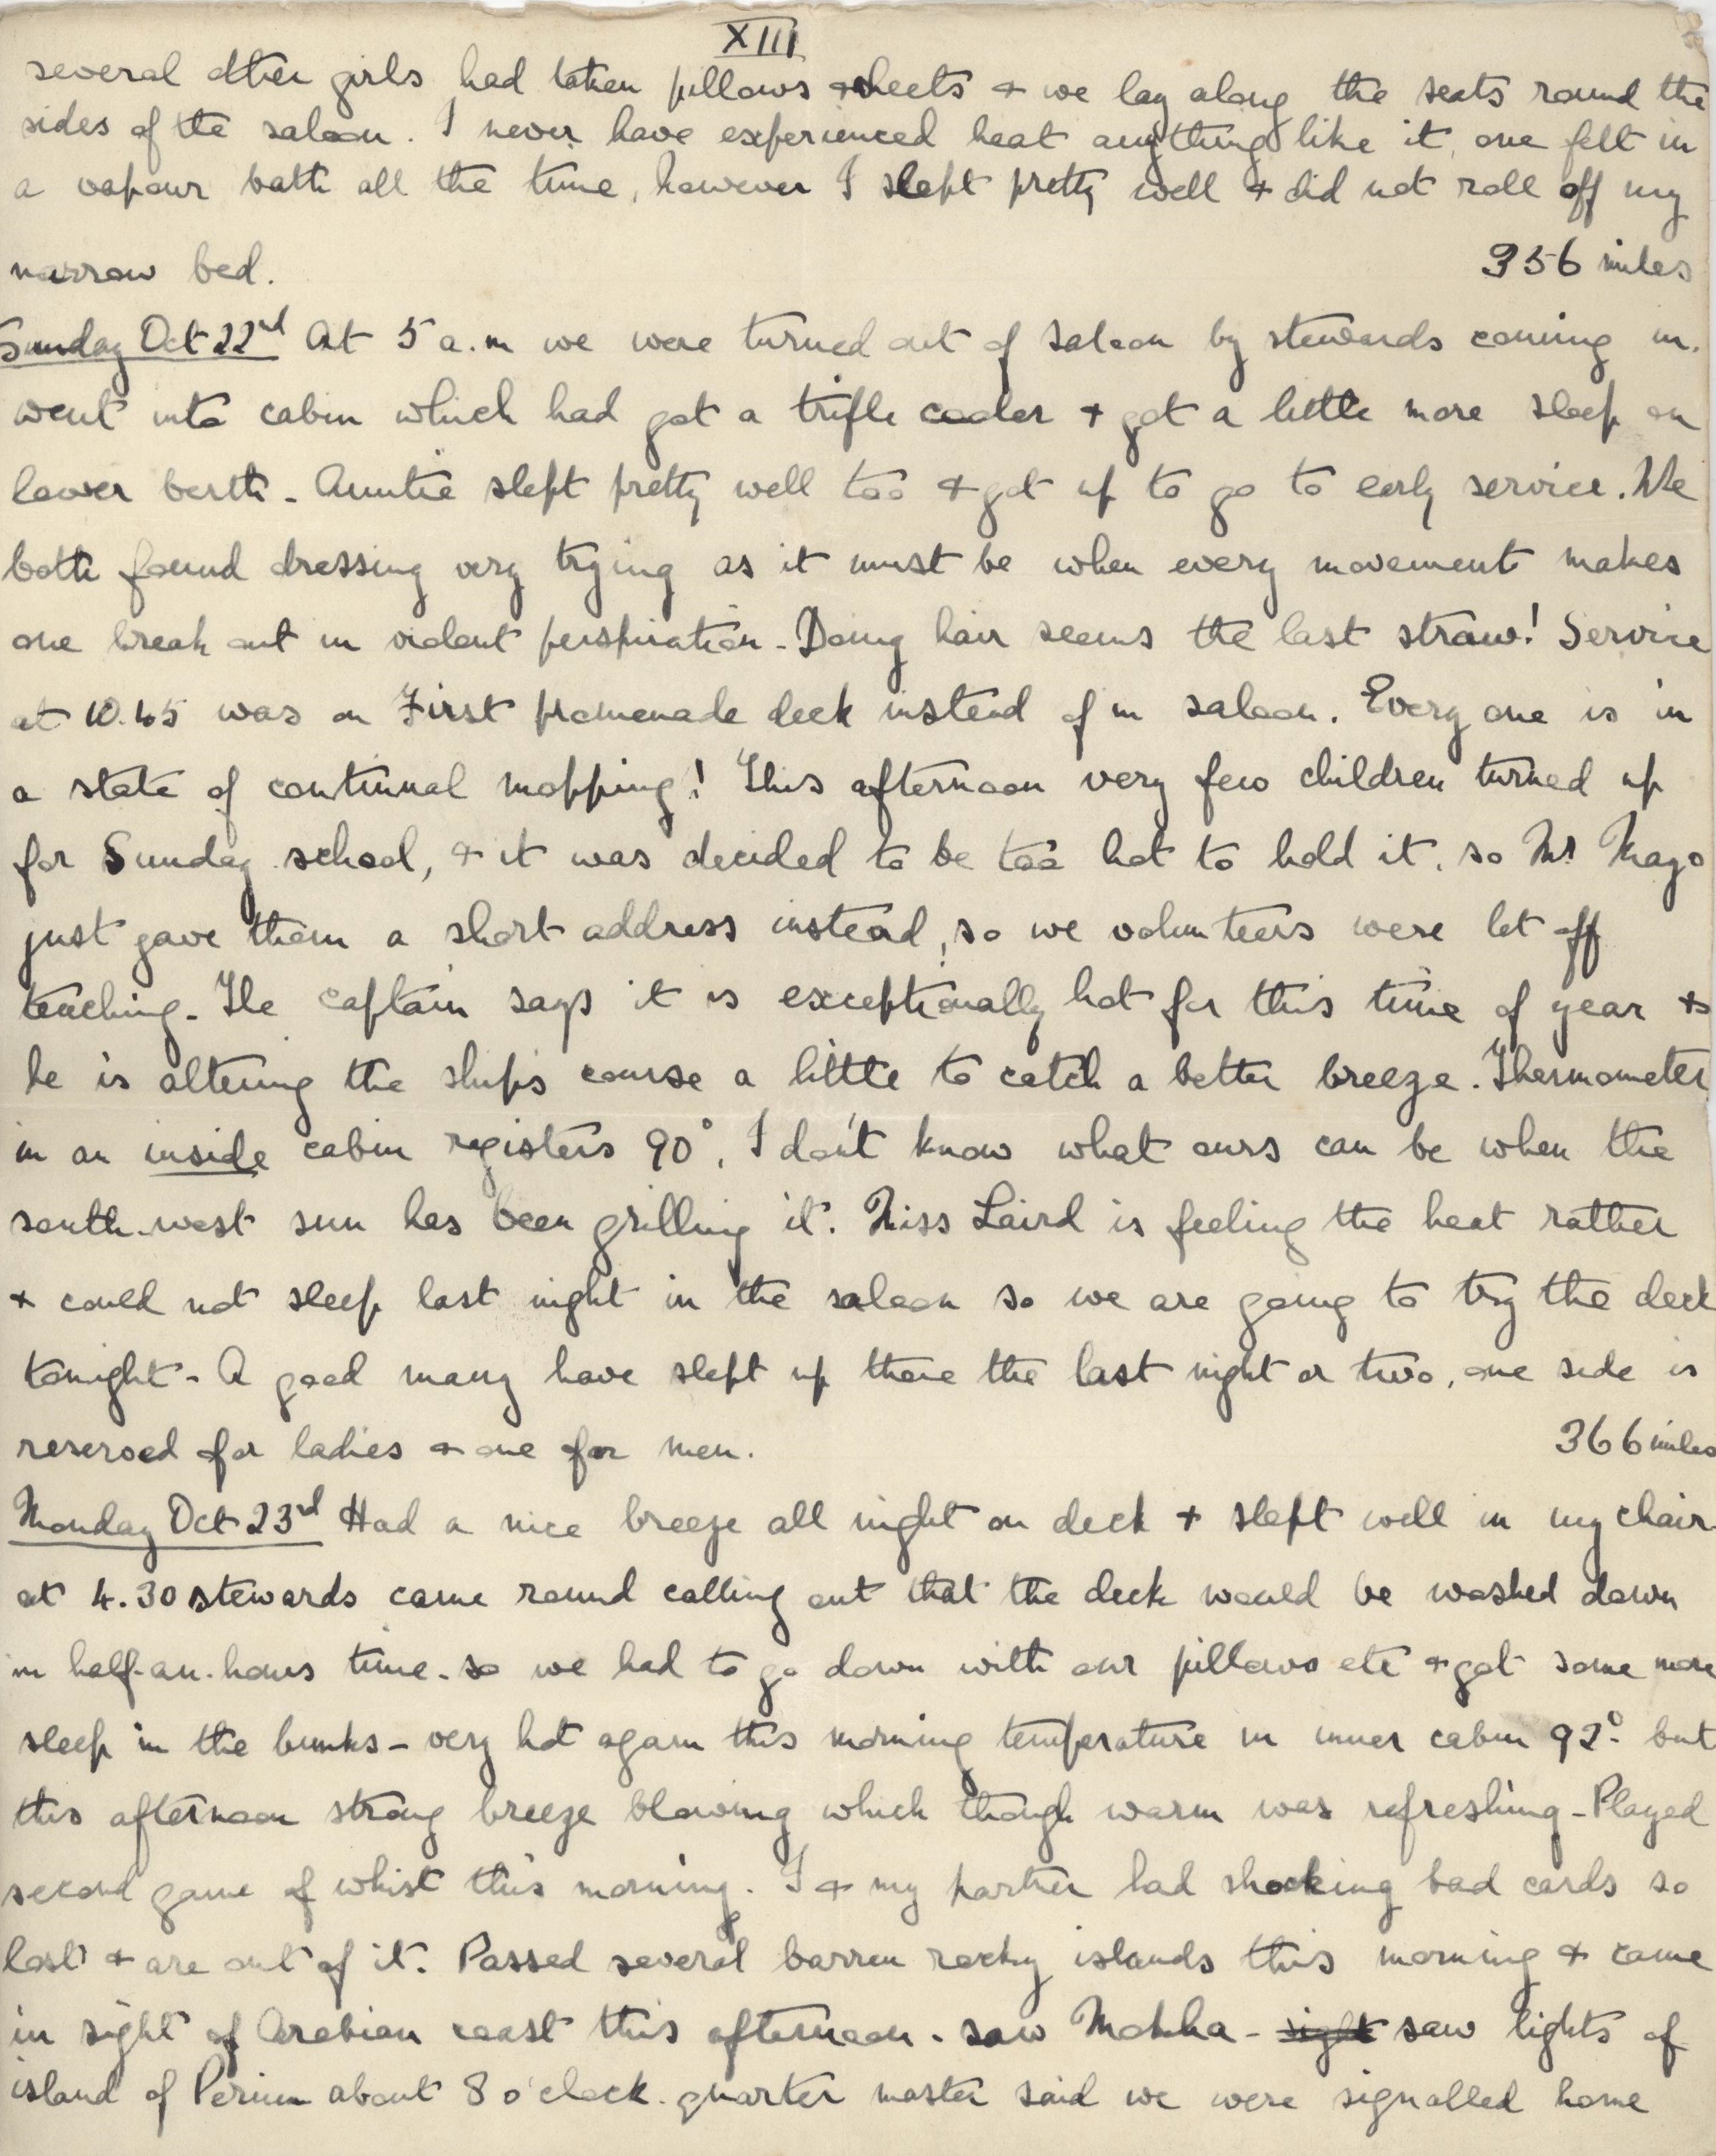 XIII
several other girls had taken pillows & sheets & we lay along the seats round the
sides of the saloon. I never have experienced heat anything like it, one felt in
a vapour bath all the time, however I slept pretty well & did not roll off my
narrow bed. 356 miles
Sunday Oct 22nd At 5 a.m we were turned out of saloon by stewards coming in.
went into cabin which had got a trifle cooler & got a little more sleep on
lower berth - Auntie slept pretty well too & got up to go to early service. We
both found dressing very trying as it must be when every movement makes
one break out in violent perspiration - Doing hair seems the last straw! Service
at 10.45 was on First promenade deck instead of in saloon. Every one is in
a state of continual mopping! This afternoon very few children turned up
for Sunday school, & it was decided to be too hot to hold it, so Mr Mayo
just gave them a short address instead, so we volunteers were let off
teaching - The captain says it is exceptionally hot for this time of year &
he is altering the ship's course a little to catch a better breeze. Thermometer
in an inside cabin registers 90°, I don't know what ours can be when the
south-west sun has been grilling it. Miss Laird is feeling the heat rather
& could not sleep last night in the saloon so we are going to try the deck
tonight - A good many have slept up there the last night or two, one side is
reserved for ladies & one for men. 366 miles
Monday Oct 23rd Had a nice breeze all night on deck & slept well in my chair
at 4.30 stewards came round calling out that the deck would be washed down
in half-an-hours time - so we had to go down with our pillows etc & got some more
sleep in the bunks - very hot again this morning temperature in inner cabin 92° but
this afternoon strong breeze blowing which though warm was refreshing - Played
second game of whist this morning. I & my partner had shocking bad cards so
lost & are out of it. Passed several barren rocky islands this morning & came
in sight of Arabian coast this afternoon - saw Mokha - sight saw lights of
island of Perim about 8 o'clock. quarter master said we were signalled home